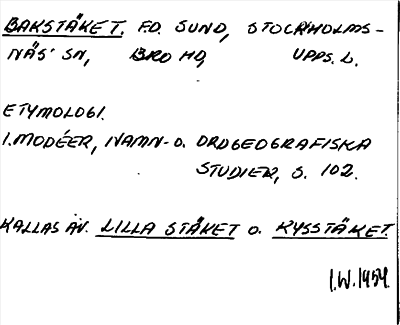 BAKSTÄKET. F.D. SUND, STOCKHOLMS-
NÄS' SN, BRO HD, UPPS. L.
ETYMOLOGI.
I. MODÉER, NAMN- O. ORDGEOGRAFISKA
STUDIER, S. 102.
KALLAS ÄV. LILLA STÄKET O. RYSSTÄKET.
I.W. 1954.